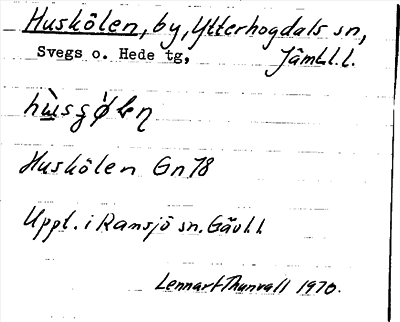 Huskölen, by, Ytterhogdals sn,
Svegs o. Hede tg, Jämtl.l.
Huskölen Gn 78
Uppl. i Ramsjö sn. Gävl.l
Lennart Thunvall 1970.